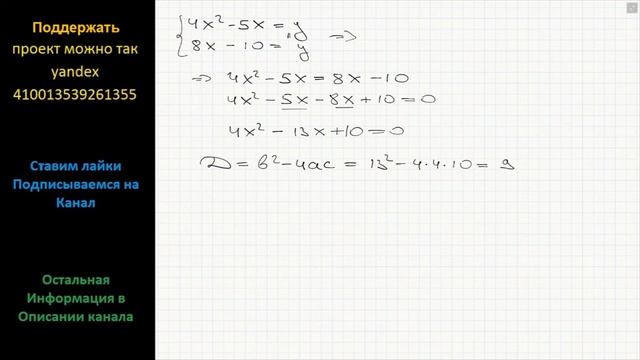 Поддержать
проект можно так
yandex
410013539261355
Ставим лайки
Подписываемся на
Канал
Остальная
Информация в
Описании канала
4x² - 5x = y
8x - 10 = y ⇒
⇒ 4x² - 5x = 8x - 10
4x² - 5x - 8x + 10 = 0
4x² - 13x + 10 = 0
D = b² - 4ac = 13² - 4·4·10 = 9